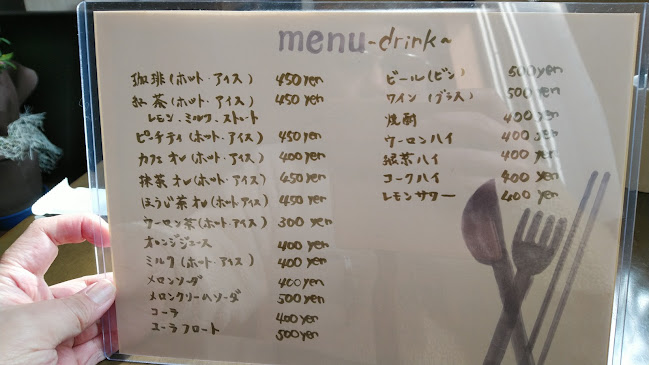 menu -drink~
珈琲(ホット・アイス) 450yen
紅茶(ホット・アイス) 450yen
レモン・ミルク・ストレート
ピーチティ(ホット・アイス) 450yen
カフェオレ(ホット・アイス) 400yen
抹茶オレ(ホット・アイス) 450yen
ほうじ茶オレ(ホット・アイス) 450yen
ウーロン茶(ホット・アイス) 300yen
オレンジジュース 400yen
ミルク(ホット・アイス) 400yen
メロンソーダ 400yen
メロンクリームソーダ 500yen
コーラ 400yen
コーラフロート 500yen
ビール(ビン) 500yen
ワイン(グラス) 500yen
焼酎 400yen
ウーロンハイ 400yen
緑茶ハイ 400yen
コークハイ 400yen
レモンサワー 400yen